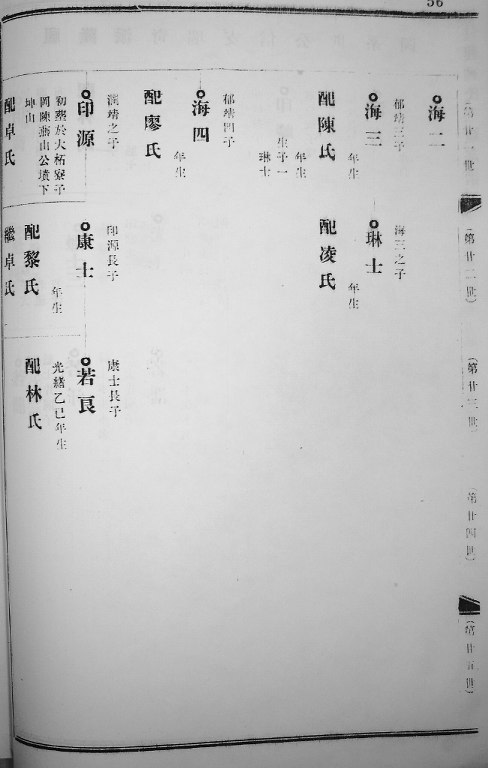 56
(第廿一世)
(第廿二世)
(第廿三世)
(第廿四世)
(第廿五世)
海二
郁靖三子
海三
年生
配陳氏
年生
生子一
琳士
郁靖四子
海四
年生
配廖氏
靖之子
印源
初葬於大柘寮子
岡陳燕山公墳下
坤山
配卓氏
海三之子
琳士
年生
配凌氏
印源長子
康士
年生
配黎氏
繼卓氏
康士長子
若良
光緒乙巳年生
配林氏